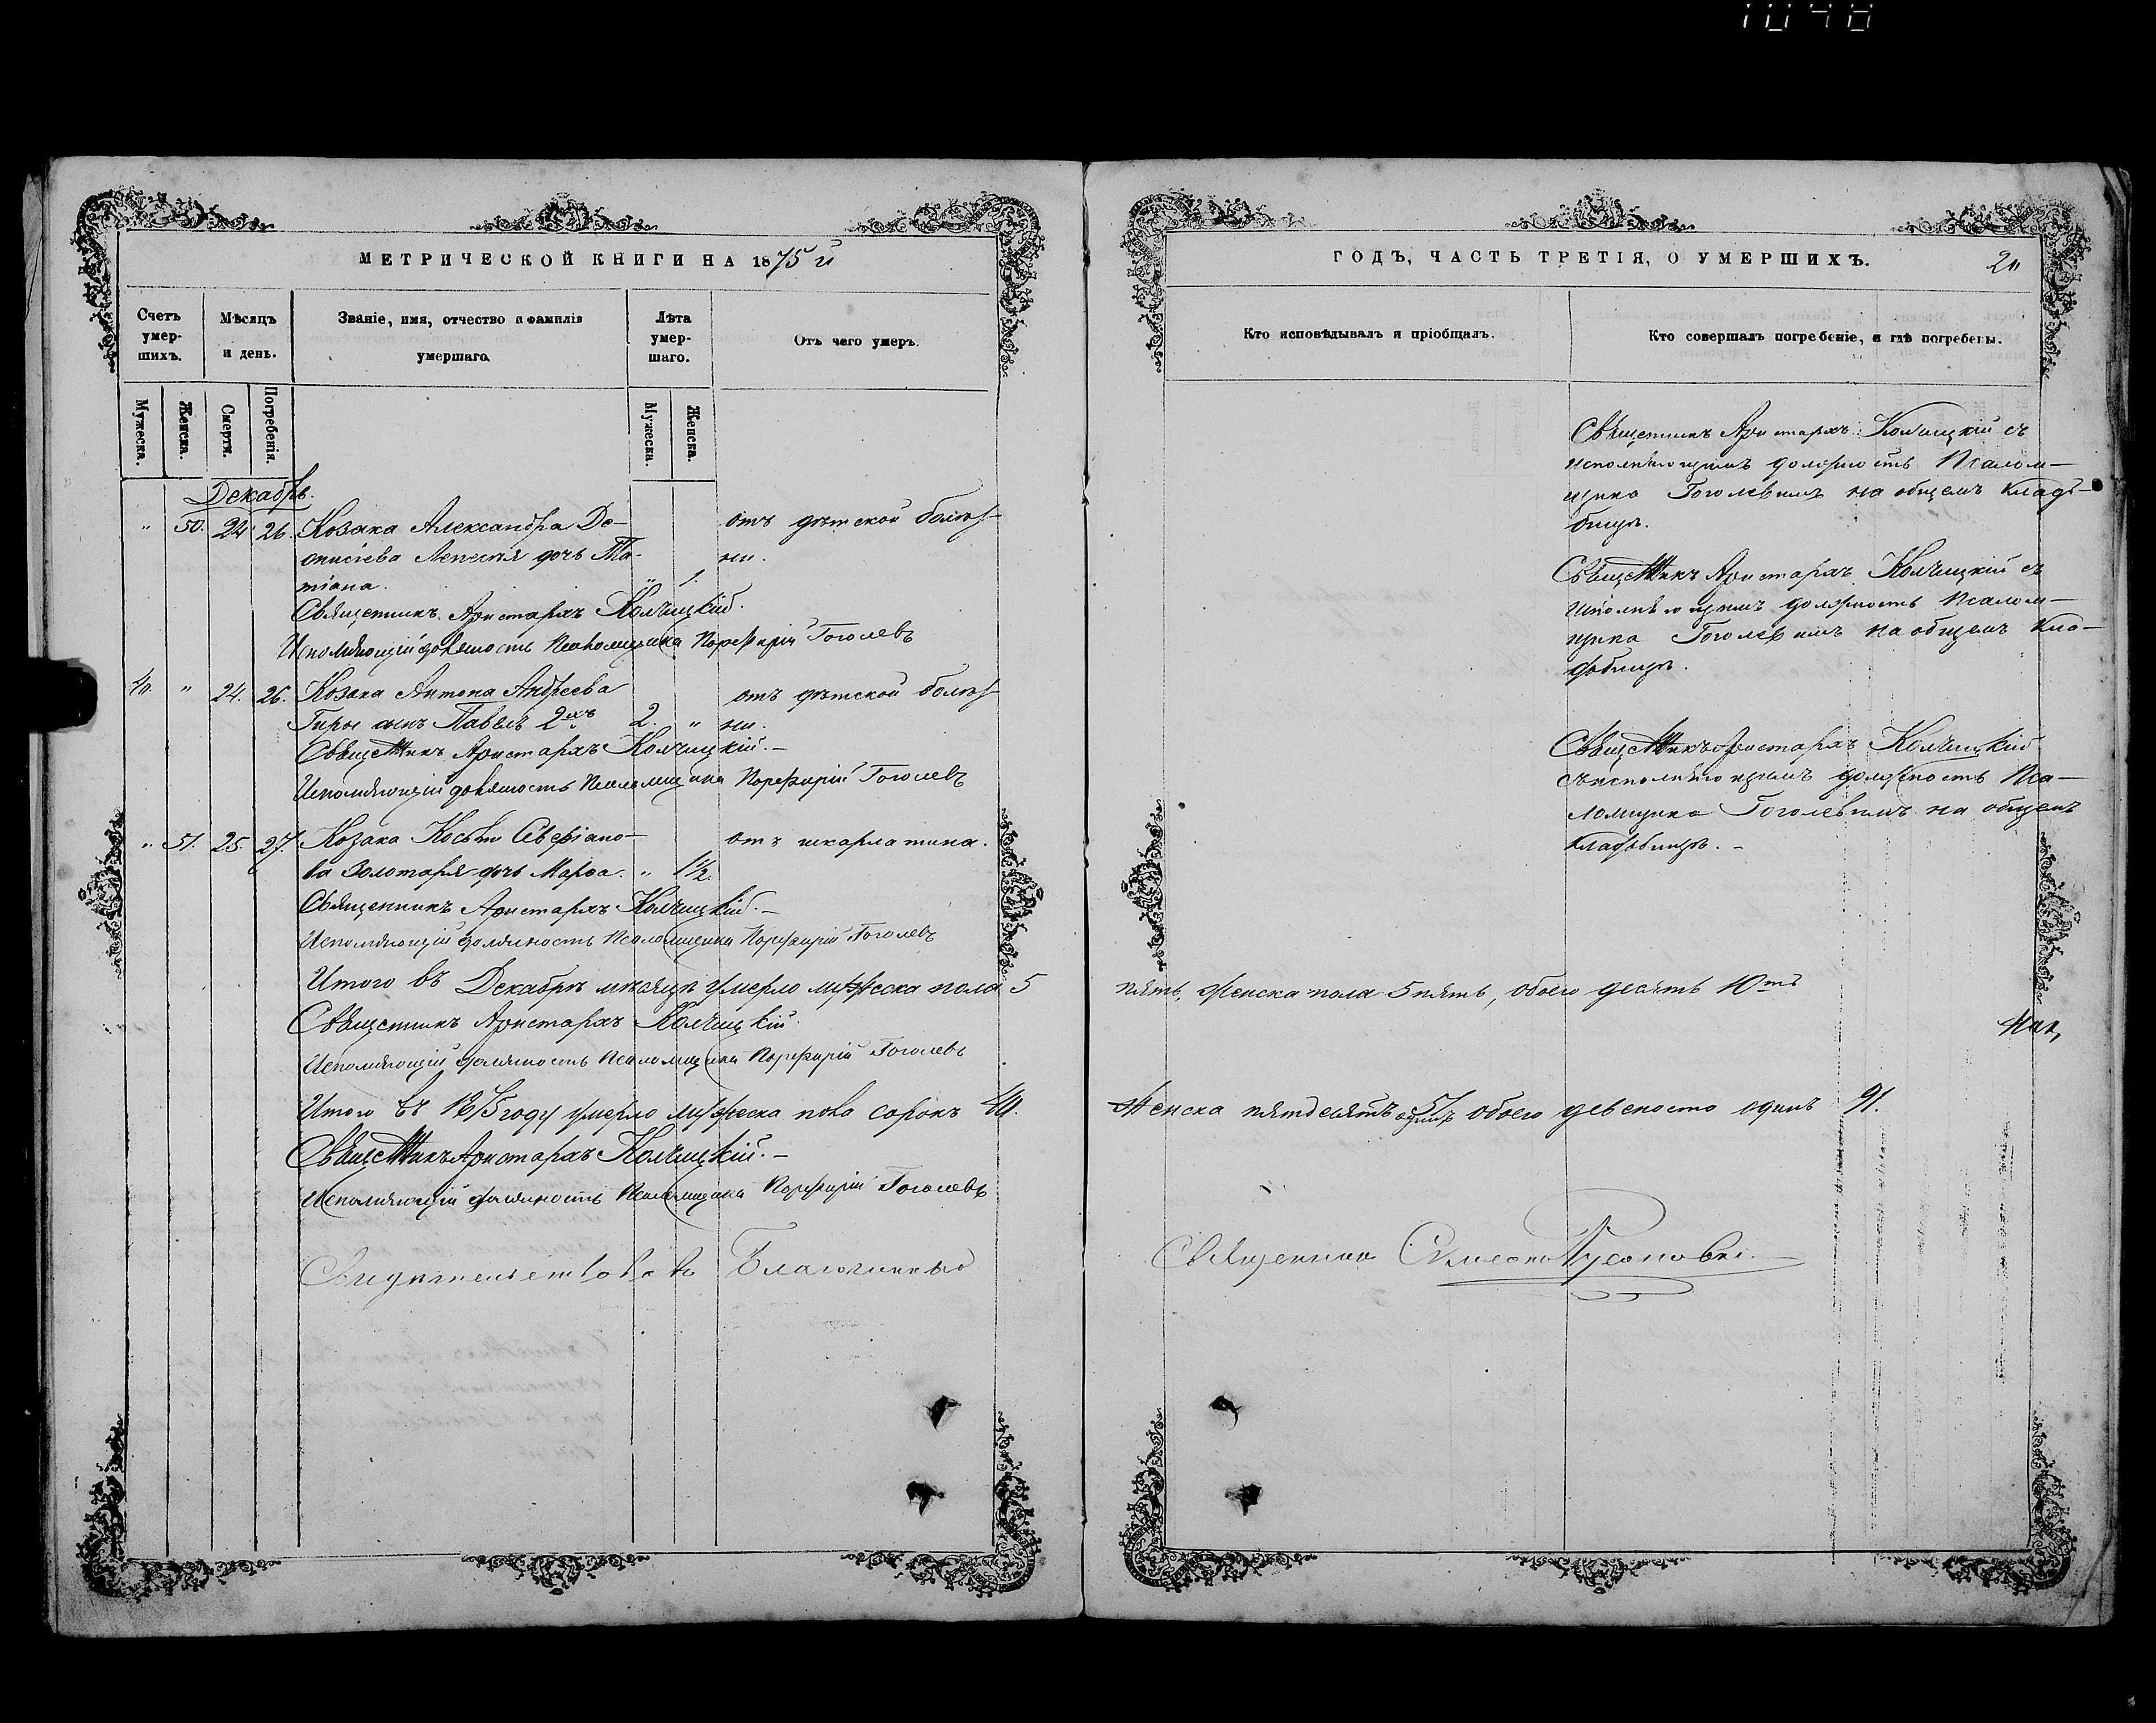 1048
МЕТРИЧЕСКОЙ КНИГИ НА 1875 й
Счетъ умер-шихъ.
Мѣсяцъ и день.
Званіе, имя, отчество и фамилія умершаго.
Лѣта умер-шаго.
Отъ чего умеръ.
Мужеска.
Женска.
Смерти.
Погребенія.
Мужеска.
Женска.
Декабрь.
" 50. 24 26. Козака Александра Де- отъ дѣтской болѣз-
дочь Та- ни.
тіана. " 1.
Священникъ Аристархъ Колчицкій.
Исполняющій должность Псаломщика Порфирій Гоголевъ
40. " 24. 26. Козака Антона Андреева отъ дѣтской болѣз-
Гиры сынъ Павелъ 2хъ 2. " ни.
Священникъ Аристархъ Колчицкій. –
Исполняющій должность Псаломщика Порфирій Гоголевъ
" 51. 25. 27. Козака Косьмы Севѣріано- отъ шкарлатина.
ва Золотаря дочь Марѳа. " 1½.
Священникъ Аристархъ Колчицкій. –
Исполняющій должность Псаломщика Порфирій Гоголевъ
Итого въ Декабрѣ мѣсяцѣ умерло мужеска пола 5
Священникъ Аристархъ Колчицкій.
Исполняющій должность Псаломщика Порфирій Гоголевъ
Итого въ 1875 году умерло мужеска пола сорокъ 40.
Священникъ Аристархъ Колчицкій. –
Исполняющій должность Псаломщика Порфирій Гоголевъ
Свидѣтельствовалъ Благочинный
ГОДЪ, ЧАСТЬ ТРЕТІЯ, О УМЕРШИХЪ.
Кто исповѣдывалъ и пріобщалъ.
Кто совершалъ погребеніе, и гдѣ погребены.
Священникъ Аристархъ Колчицкій съ
исполняющимъ должность Псалом-
щика Гоголевымъ на общемъ кладъ-
бищѣ.
Священникъ Аристархъ Колчицкій съ
исполняющимъ должность Псалом-
щика Гоголевымъ на общемъ кла-
дбищѣ.
Священникъ Аристархъ Колчицкій
съ исполняющимъ должность Пса-
ломщика Гоголевымъ на общемъ
кладбищѣ. –
пять, женска пола 5 пять, обоего десять 10ть
Женска пятдесятъ одинъ 51 обоего девяносто одинъ 91.
Священникъ